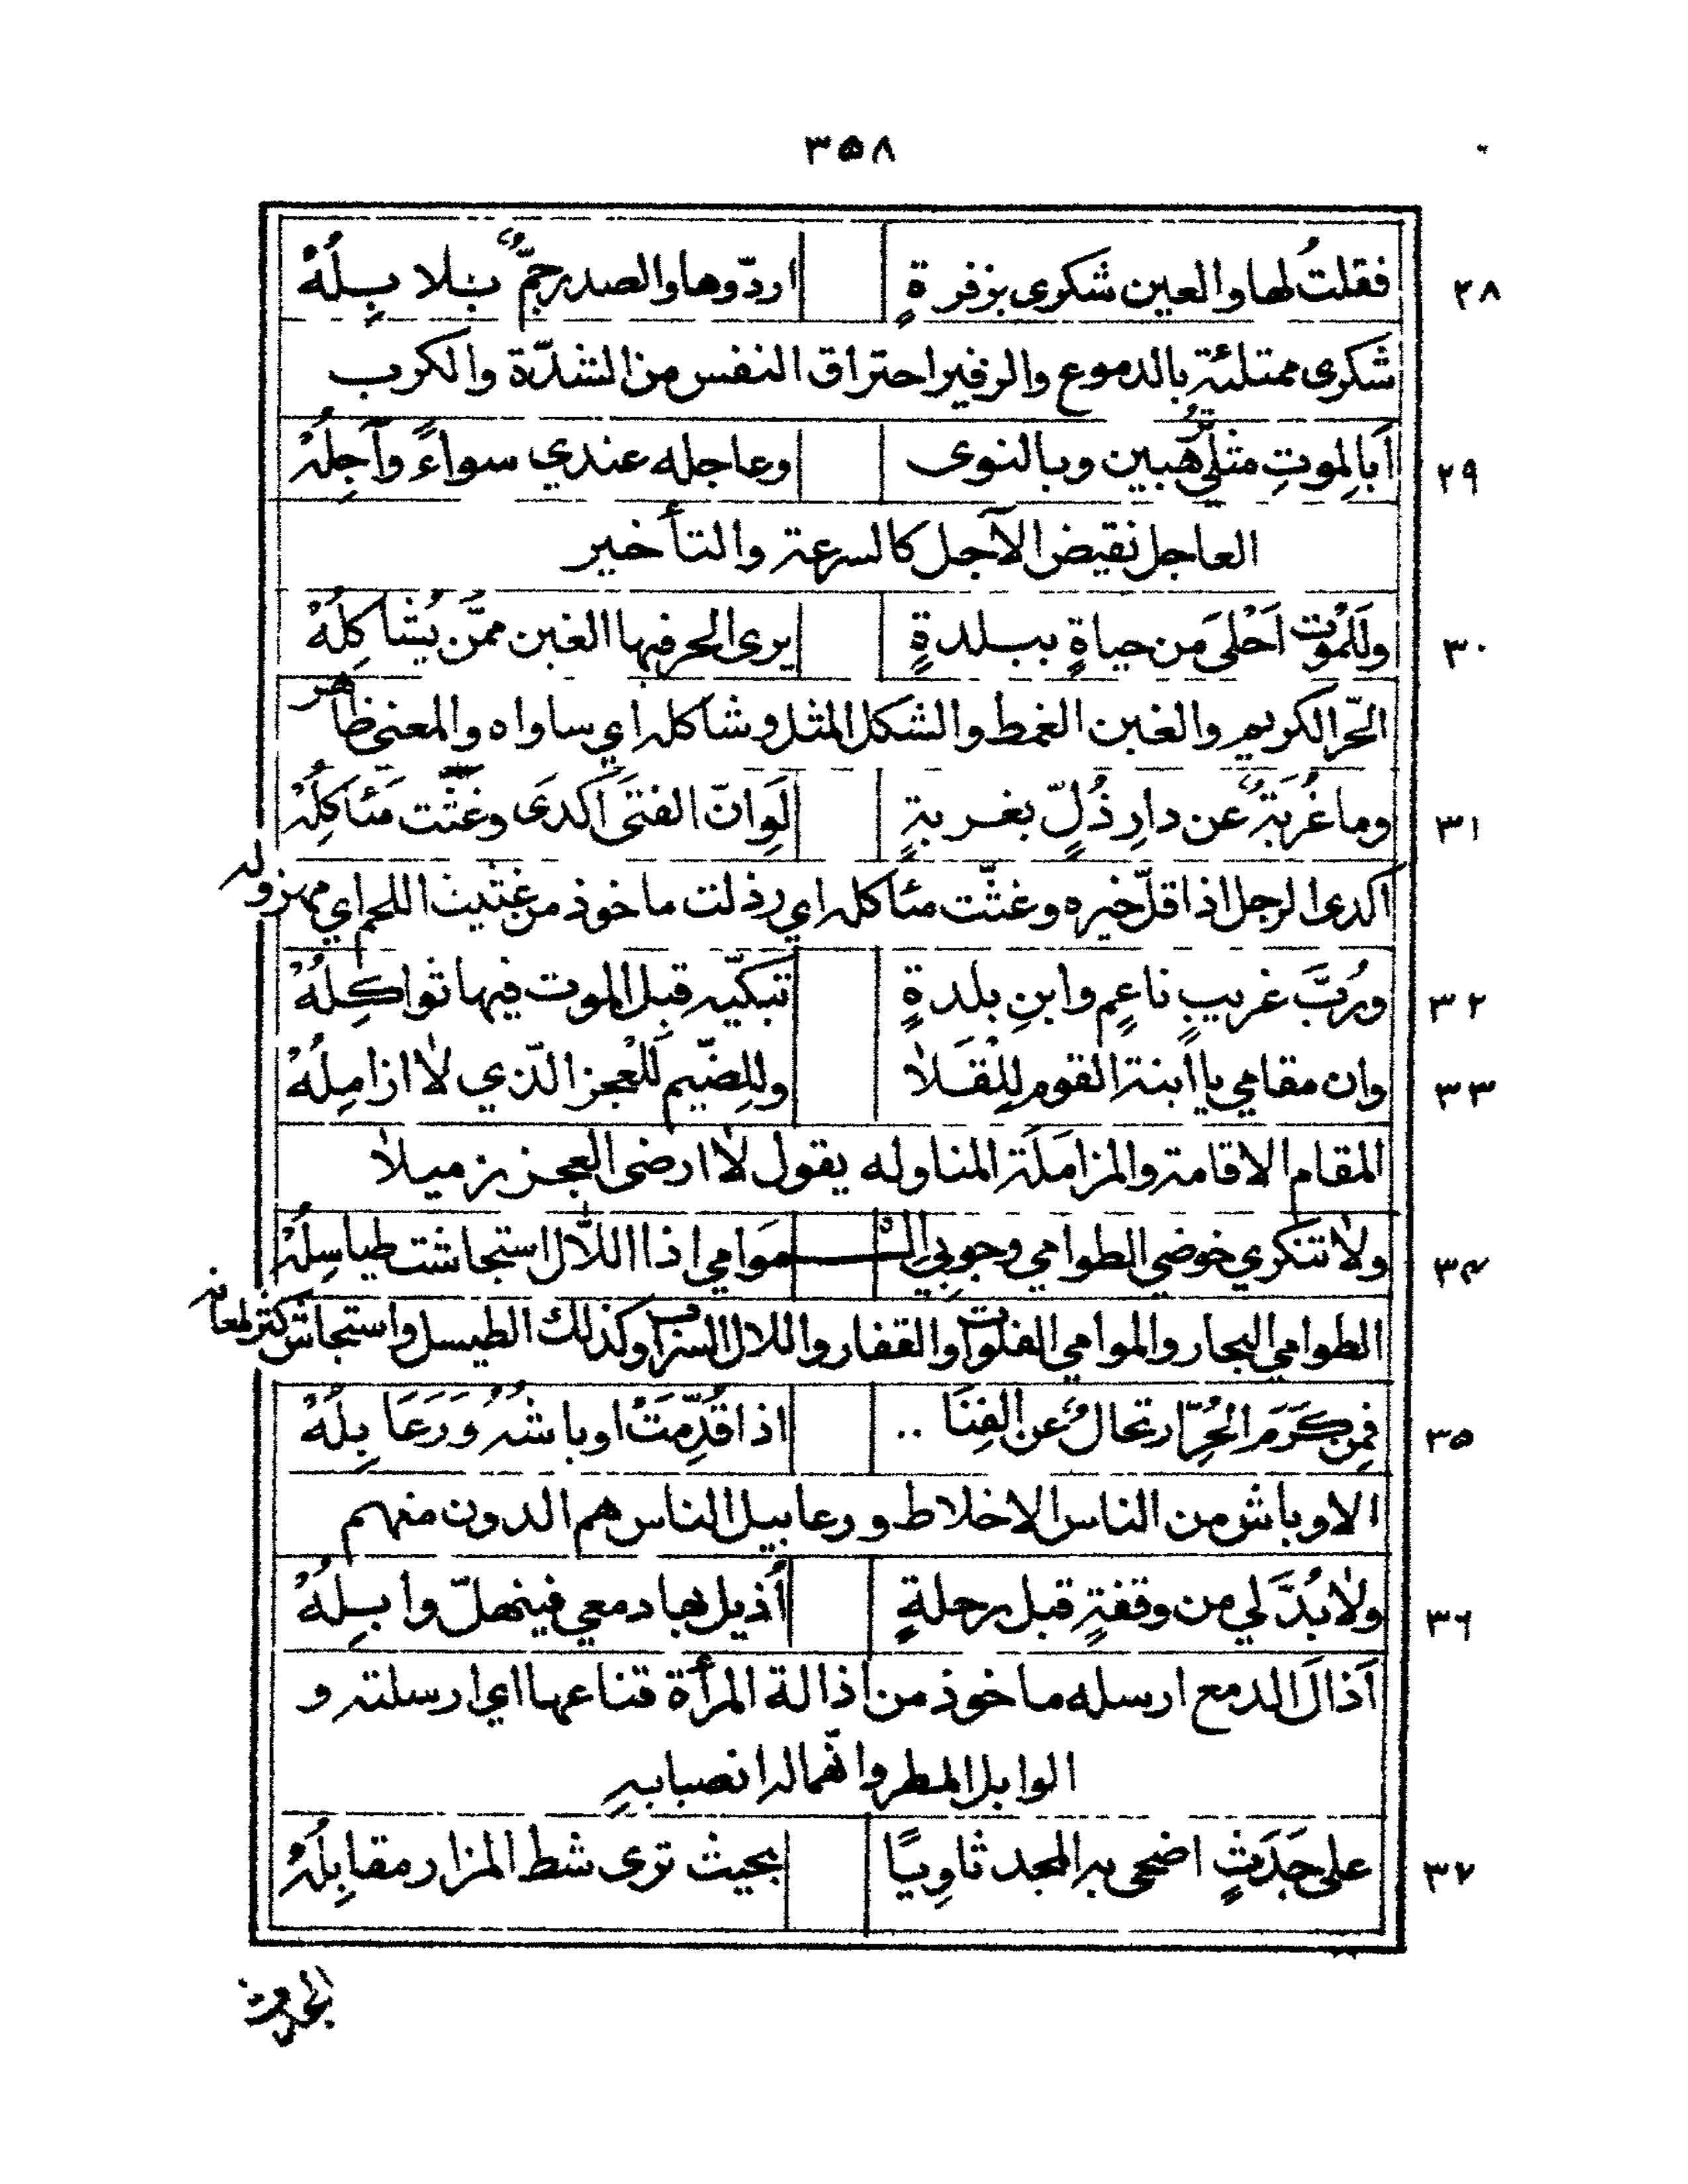 ٣٥٨
٢٨ فقلتُ لها والعين شكرى بزفرةٍ اردّوها والصدر جمٌّ بلابِلُهْ
شكرى ممتلئة بالدموع والزفير احتراق النفس من الشدّة والكرب
٢٩ أبالموتِ مثلي تُرهبين وبالنوى وعاجله عندي سواءً وآجِلُهْ
العاجل نقيض الآجل كالسرعة والتأخير
٣٠ ولَلمَوْت اَحْلىَ من حياةٍ ببلدةٍ يرى الحر فيها الغبن ممَّن يُشاكِلُهْ
الحّر الكريم والغبن الغمط والشكل المثل وشاكله اي ساواه والمعنى ظاهر
٣١ وما غُربَةٌ عن دارِ ذُلٍّ بغربةٍ لَوِ انّ الفتَى اكدَى وغثّت مَئاكِلُهْ
اكدى الرجل اذا قلّ خيره وغثّت مئاكله اي رذلت ماخوذ من غثيث اللحم اي مهزوله
٣٢ ورُبَّ غريبٍ ناعِمٍ وابنِ بلدةٍ تبكّيه قبل الموت فيها ثواكِلُهْ
٣٣ وان مقامي يا ابنة القوم لِلْقَلا وللِضّيم لَلْعجز الّذي لا ازامِلُهْ
المقام الاقامة والمزامَلَة المناوله يقول لا ارضى العجز بزميلا
٣٤ ولا تنكري خوضي الطوامي وجوبي الْـمَوامي اذا اللّال استجاشت طياسِلُهْ
الطوامي البحار والموامي الفلوات والقفار واللال السراب وكذلك الطيسل واستجاش كثر لمعانه
٣٥ فمِن كَرَمِ الحُرِّ ارتحالٌ عن الفِنَا .. اذا قُدِّمَتْ اوباشُهُ وَرَعَابِلُهْ
الاوباش من الناس الاخلاط ورعابيل الناس هم الدون منهم
٣٦ ولا بُدَّ لي من وقفةٍ قبل رحلةٍ أُذيل بها دمعي فينهلّ وابِلُهْ
اَذالَ الدمع ارسله ماخوذ من اذالة المرأة قناعها اي ارسلته و
الوابل المطر وانهماله انصبابه
٣٧ على جَدَثٍ اضحى به المجد ثاوِيًا بحيث ترى شط المزار مقابِلُهْ